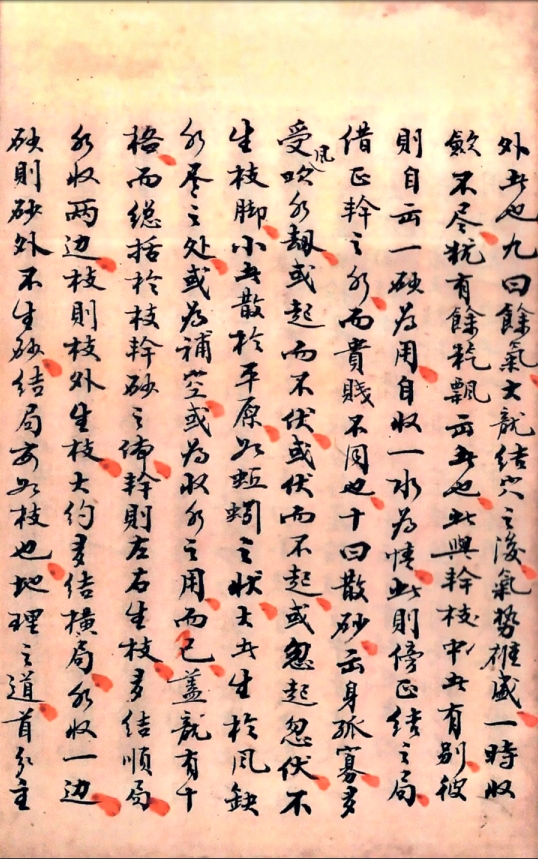 外者也九曰餘氣大龍結穴之後氣勢雄盛一時收
歛不尽犹有餘氣飄云者也此與幹枝中者有别彼
則自云一砂為用自收一水為情此則傍正結之局
借正幹之水而貴賤不同也十曰散砂云身孤寡多
受風吹水刼或起而不伏或伏而不起或忽起忽伏不
生枝脚小者散於平原如蚯蚓之狀大者生於风缺
水尽之处或為補空或為收水之用而已盖龍有十
格而総括於枝幹砂之体幹則左右生枝多結順局
水收两边枝則枝外生枝大约多结横局水收一边
砂則砂外不生砂结局亦如枝也地理之道首分主